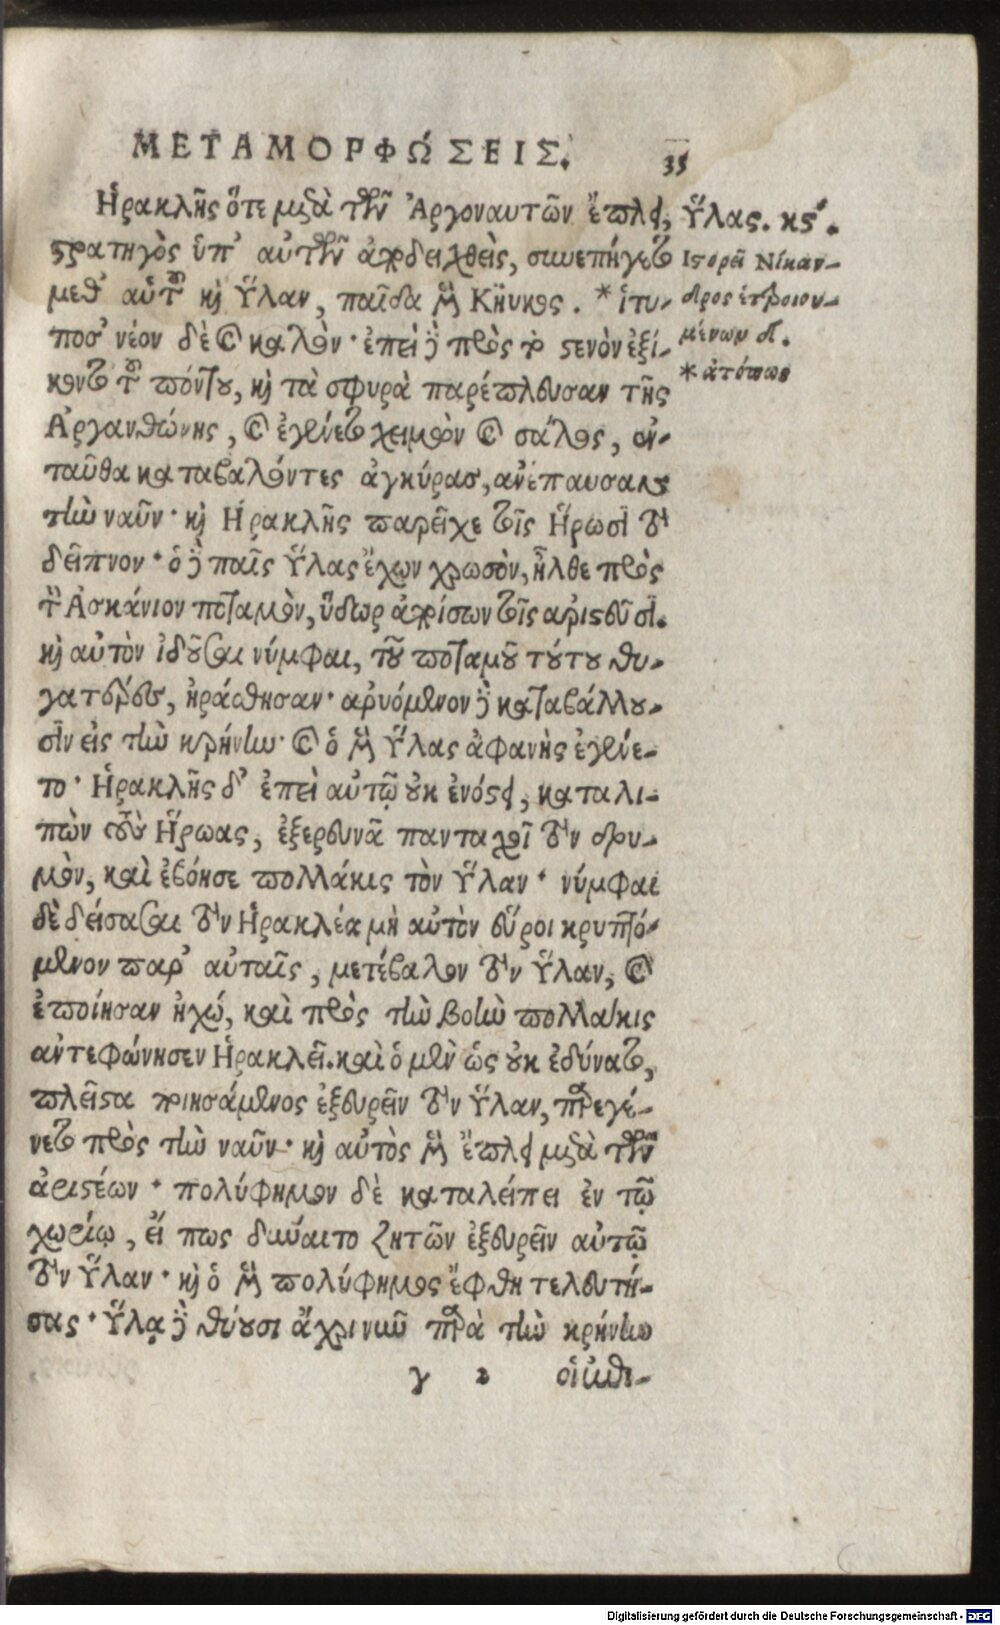 ΜΕΤΑΜΟΡΦΏΣΕΙΣ. 35
Ἡρακλῆς ὅτε μετὰ τῶν Ἀργοναυτῶν ἔπλει,
στρατηγὸς ὑπ' αὐτῶν ἀποδειχθεὶς, συνεπήγετο
μεθ' αὑτοῦ καὶ Ὕλαν, παῖδα μὲν Κήυκος. * ἱτυ-
ποσ' νέον δὲ καὶ καλόν· ἐπεὶ δὲ πρὸς τὸ στενὸν ἐξί-
κοντο τοῦ πόντου, καὶ τὰ σφυρὰ παρέπλευσαν τῆς
Ἀργανθώνης, καὶ ἐγένετο χειμὼν καὶ σάλος, ἐν-
ταῦθα καταβαλόντες ἀγκύρας, ἀνέπαυσαν
τὴν ναῦν· καὶ Ἡρακλῆς παρεῖχε τοῖς Ἥρωσι τὸ
δεῖπνον· ὁ δὲ παῖς Ὕλας ἔχων χρωσὸν, ἦλθε πρὸς
τὸν Ἀσκάνιον ποταμὸν, ὕδωρ ἀποίσων τοῖς ἀριστεῦσι.
καὶ αὐτὸν ἰδοῦσαι νύμφαι, τοῦ ποταμοῦ τούτου θυ-
γατέρες, ἠράσθησαν· ἀρυόμενον δὲ καταβάλλου-
σιν εἰς τὴν κρήνην· καὶ ὁ μὲν Ὕλας ἀφανὴς ἐγένε-
το· Ἡρακλῆς δ' ἐπεὶ αὐτῷ οὐκ ἐνόστει, καταλι-
πὼν τοὺς Ἥρωας, ἐξερευνᾷ πανταχοῖ τὸν δρυ-
μὸν, καὶ ἐβόησε πολλάκις τὸν Ὕλαν· νύμφαι
δὲ δείσασαι τὸν Ἡρακλέα μὴ αὐτὸν εὕροι κρυπτό-
μενον παρ' αὐταῖς, μετέβαλον τὸν Ὕλαν, καὶ
ἐποίησαν ἠχώ, καὶ πρὸς τὴν βοὴν πολλάκις
ἀντεφώνησεν Ἡρακλεῖ. καὶ ὁ μὲν ὡς οὐκ ἐδύνατο,
πλεῖστα ποιησάμενος ἐξευρεῖν τὸν Ὕλαν, παρεγέ-
νετο πρὸς τὴν ναῦν· καὶ αὐτὸς μὲν ἔπλει μετὰ τῶν
ἀριστέων· πολύφημον δὲ καταλείπει ἐν τῷ
χωρίῳ, εἴ πως δύναιτο ζητῶν ἐξευρεῖν αὐτῷ
τὸν Ὕλαν· καὶ ὁ μὲν πολύφημος ἔφθη τελευτή-
σας· Ὕλᾳ δὲ θύουσι ἄχρι νῦν παρὰ τὴν κρήνην
γ 2 οἱ ἐπι-
Ὕλας. κϛ'.
Ἱστορεῖ Νίκαν-
δρος ἑτεροιου-
μένων β.
* ἀτόπως